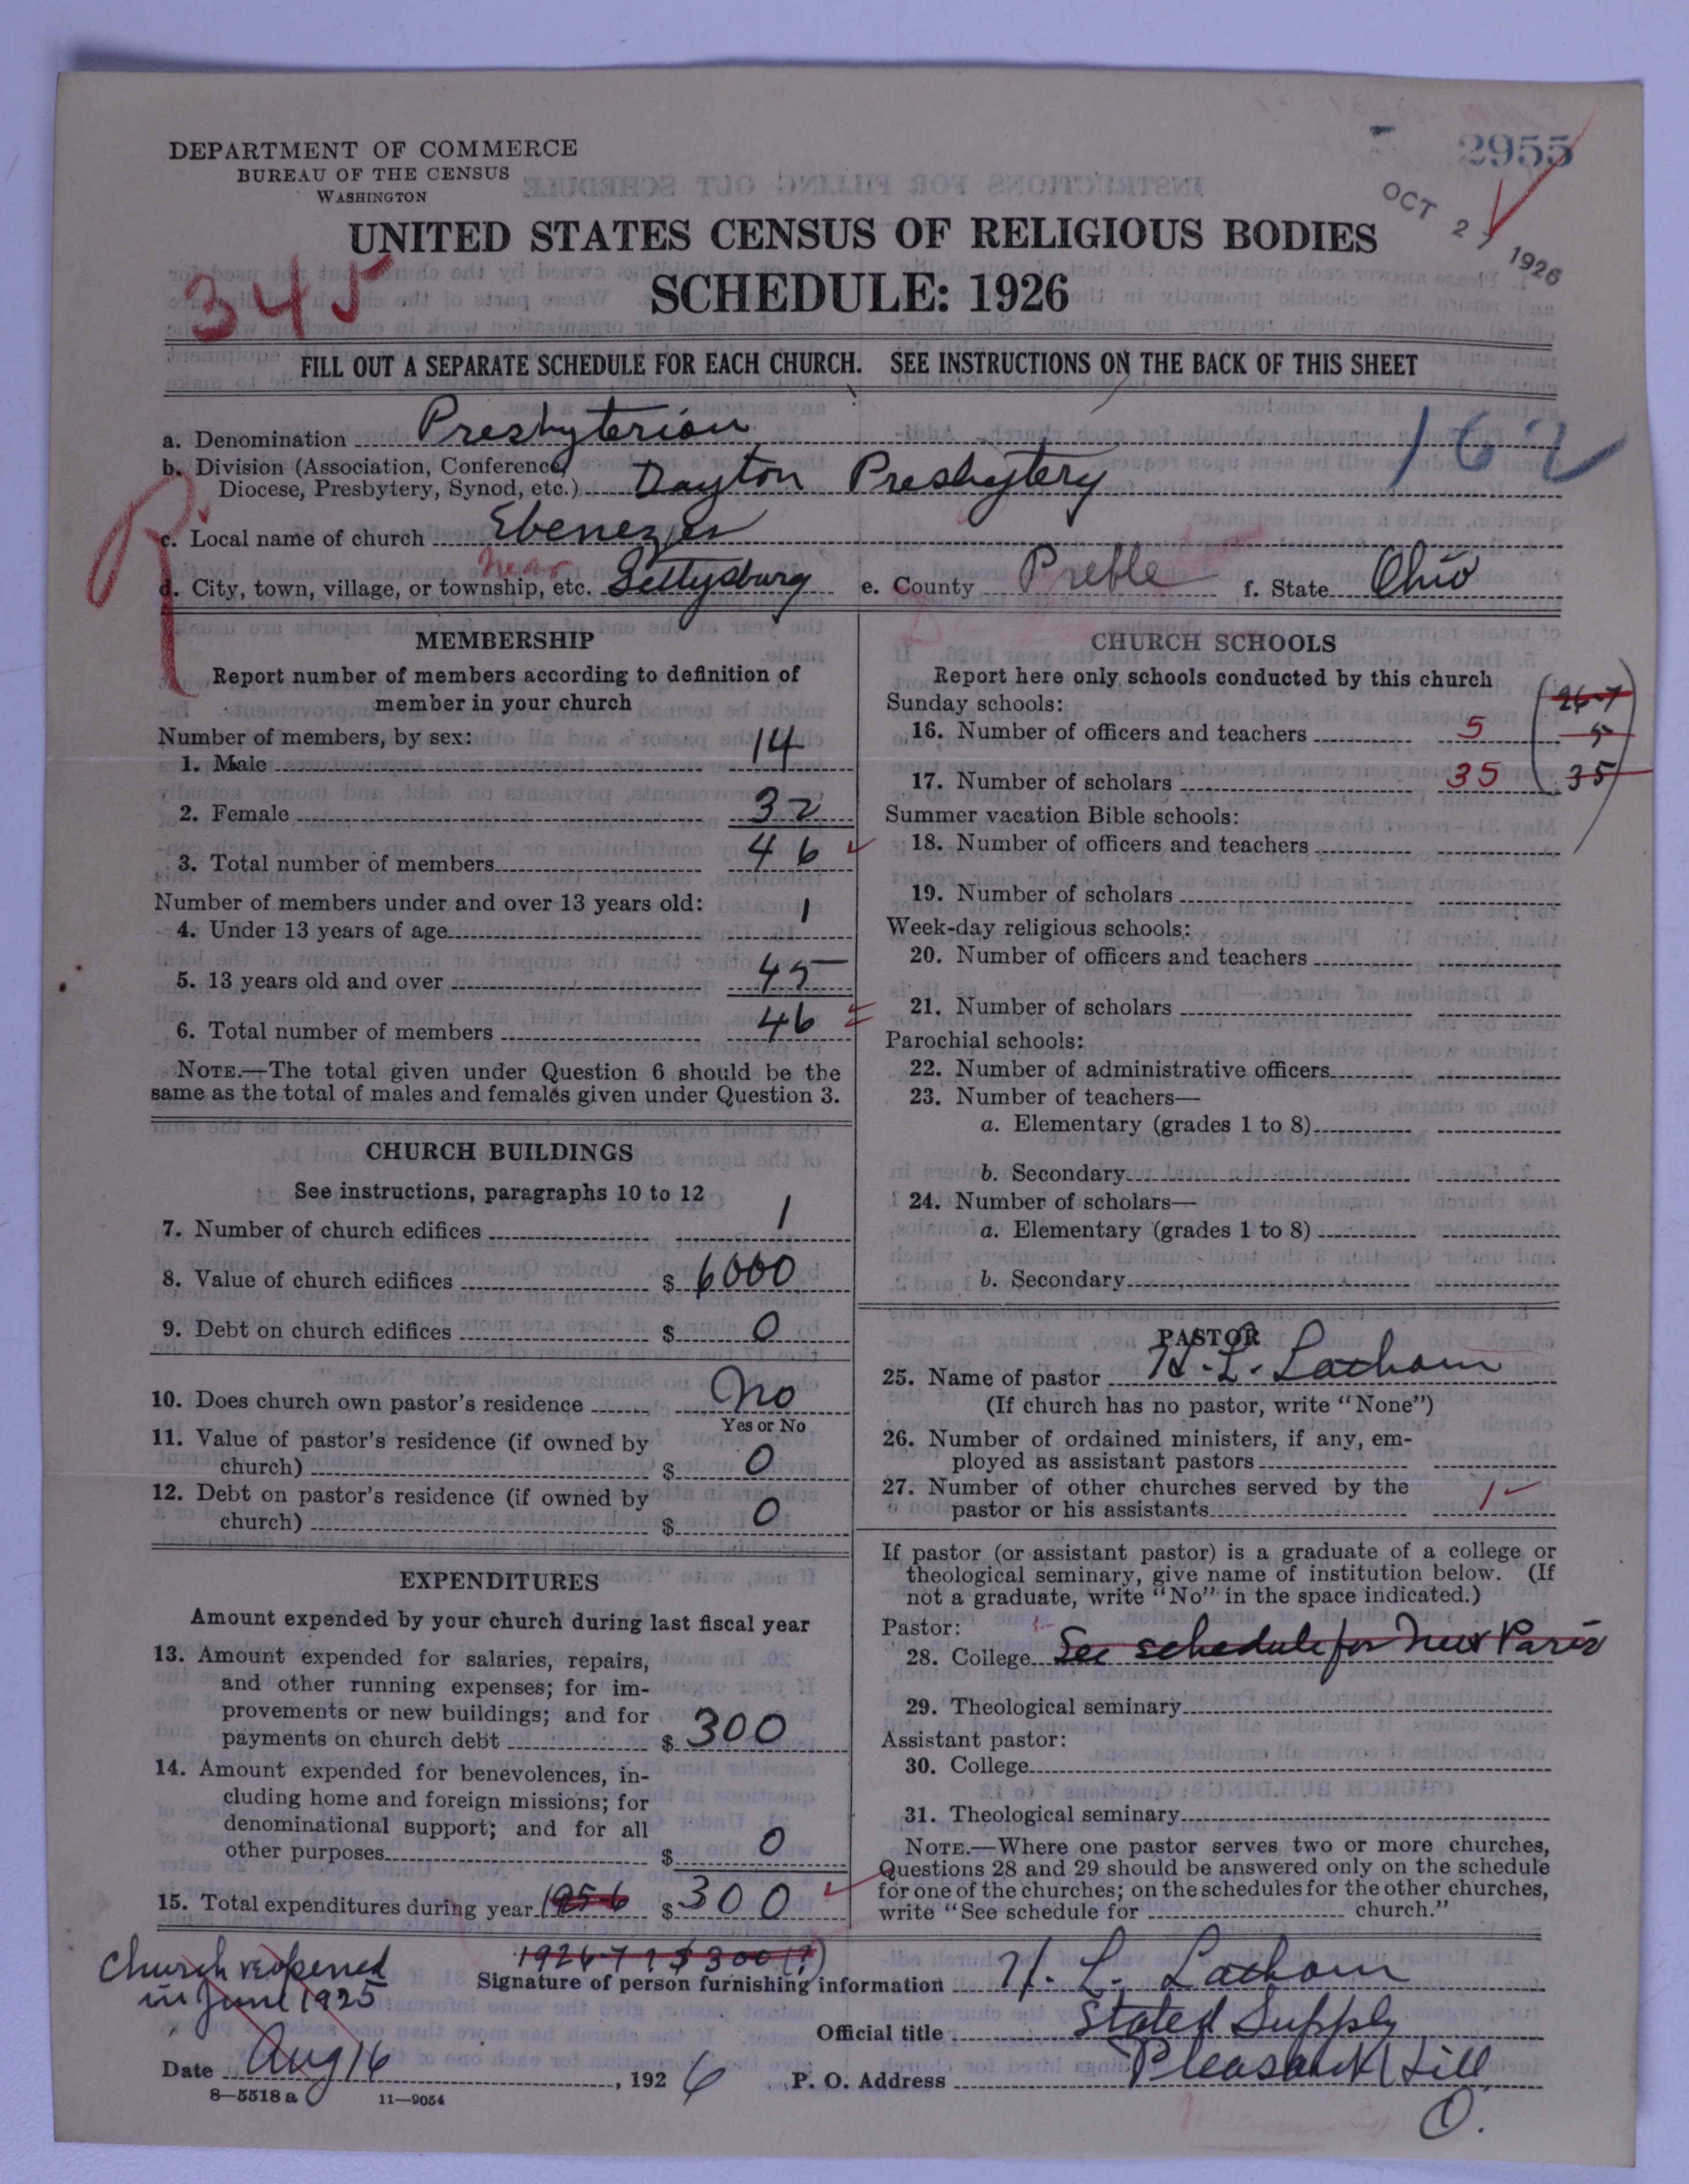 2955
OCT 27 1926
DEPARTMENT OF COMMERCE
BUREAU OF THE CENSUS
WASHINGTON
UNITED STATES CENSUS OF RELIGIOUS BODIES
345
SCHEDULE: 1926
FILL OUT A SEPARATE SCHEDULE FOR EACH CHURCH. SEE INSTRUCTIONS ON THE BACK OF THIS SHEET
a. Denomination Presbyterian
162
b. Division (Association, Conference,
Diocese, Presbytery, Synod, etc.) Dayton Presbytery
c. Local name of church Ebenezer
d. City, town, village, or township, etc. near Gettysburg e. County Preble f. State Ohio
MEMBERSHIP
Report number of members according to definition of
member in your church
Number of members, by sex:
1. Male 14
2. Female 32
3. Total number of members 46
Number of members under and over 13 years old:
4. Under 13 years of age 1
5. 13 years old and over 45
6. Total number of members 46
NOTE.—The total given under Question 6 should be the
same as the total of males and females given under Question 3.
CHURCH BUILDINGS
See instructions, paragraphs 10 to 12
7. Number of church edifices 1
8. Value of church edifices $ 6000
9. Debt on church edifices $ 0
10. Does church own pastor's residence No
Yes or No
11. Value of pastor's residence (if owned by
church) $ 0
12. Debt on pastor's residence (if owned by
church) $ 0
EXPENDITURES
Amount expended by your church during last fiscal year
13. Amount expended for salaries, repairs,
and other running expenses; for im-
provements or new buildings; and for
payments on church debt $ 300
14. Amount expended for benevolences, in-
cluding home and foreign missions; for
denominational support; and for all
other purposes $ 0
15. Total expenditures during year 1925-6 $ 300
1926-7 ? $300 (?)
CHURCH SCHOOLS
Report here only schools conducted by this church
Sunday schools:
26-7
16. Number of officers and teachers 5 5
17. Number of scholars 35 35
Summer vacation Bible schools:
18. Number of officers and teachers
19. Number of scholars
Week-day religious schools:
20. Number of officers and teachers
21. Number of scholars
Parochial schools:
22. Number of administrative officers
23. Number of teachers—
a. Elementary (grades 1 to 8)
b. Secondary
24. Number of scholars—
a. Elementary (grades 1 to 8)
b. Secondary
PASTOR
25. Name of pastor H. L. Latham
(If church has no pastor, write "None")
26. Number of ordained ministers, if any, em-
ployed as assistant pastors
27. Number of other churches served by the
pastor or his assistants 1
If pastor (or assistant pastor) is a graduate of a college or
theological seminary, give name of institution below. (If
not a graduate, write "No" in the space indicated.)
Pastor:
28. College See schedule for New Paris
29. Theological seminary
Assistant pastor:
30. College
31. Theological seminary
NOTE.—Where one pastor serves two or more churches,
Questions 28 and 29 should be answered only on the schedule
for one of the churches; on the schedules for the other churches,
write "See schedule for church."
Church reopened
in June 1925
Signature of person furnishing information H. L. Latham
Official title Stated Supply
Date Aug 16, 1926 P. O. Address Pleasant Hill
O.
8—5518 a 11—9054